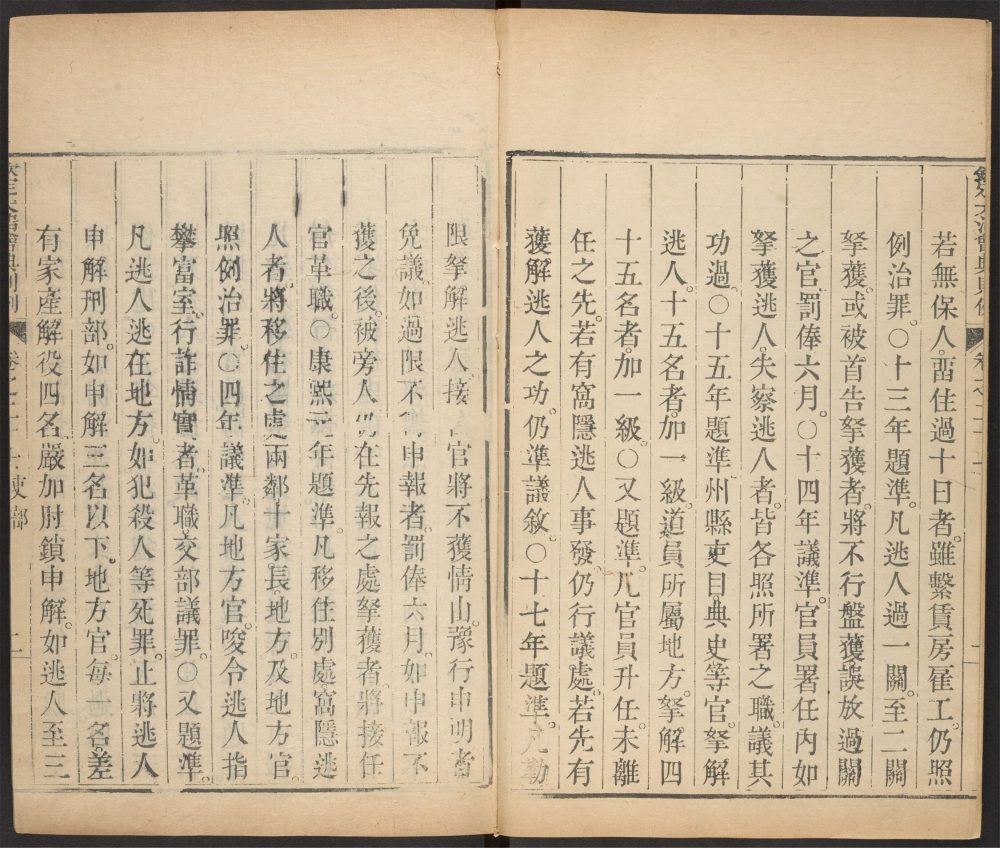 欽定大清會典則例
卷之二十
若無保人畱住過十日者。雖繫賃房雇工。仍照
例治罪。○十三年題準。凡逃人過一關。至二關
拏獲。或被首告拏獲者。將不行盤獲誤放過關
之官。罰俸六月。○十四年議準。官員署任內如
拏獲逃人。失察逃人者。皆各照所署之職。議其
功過。○十五年題準。州縣吏目典史等官。拏解
逃人。十五名者。加一級。道員所屬地方。拏解四
十五名者。加一級。○又題準。凡官員升任。未離
任之先。若有窩隱逃人事發。仍行議處。若先有
獲解逃人之功。仍準議敘。○十七年題準。凡勒
限拏解逃人。接 官將不獲情由。豫行申明者
免議。如過限不 申報者。罰俸六月。如申報不
獲之後。被旁人 在先報之處拏獲者。將接任
官革職。○康熙元年題準。凡移住別處窩隱逃
人者。將移住之處兩鄰十家長。地方。及地方官。
照例治罪。○四年議準。凡地方官。唆令逃人指
攀富室。行詐情實者。革職。交部議罪。○又題準。
凡逃人逃在地方。如犯殺人等死罪。止將逃人
申解刑部。如申解三名以下。地方官。每一名。差
有家產解役四名。嚴加肘鎖申解。如逃人至三
欽定大清會典則例
卷之二十
吏部
二